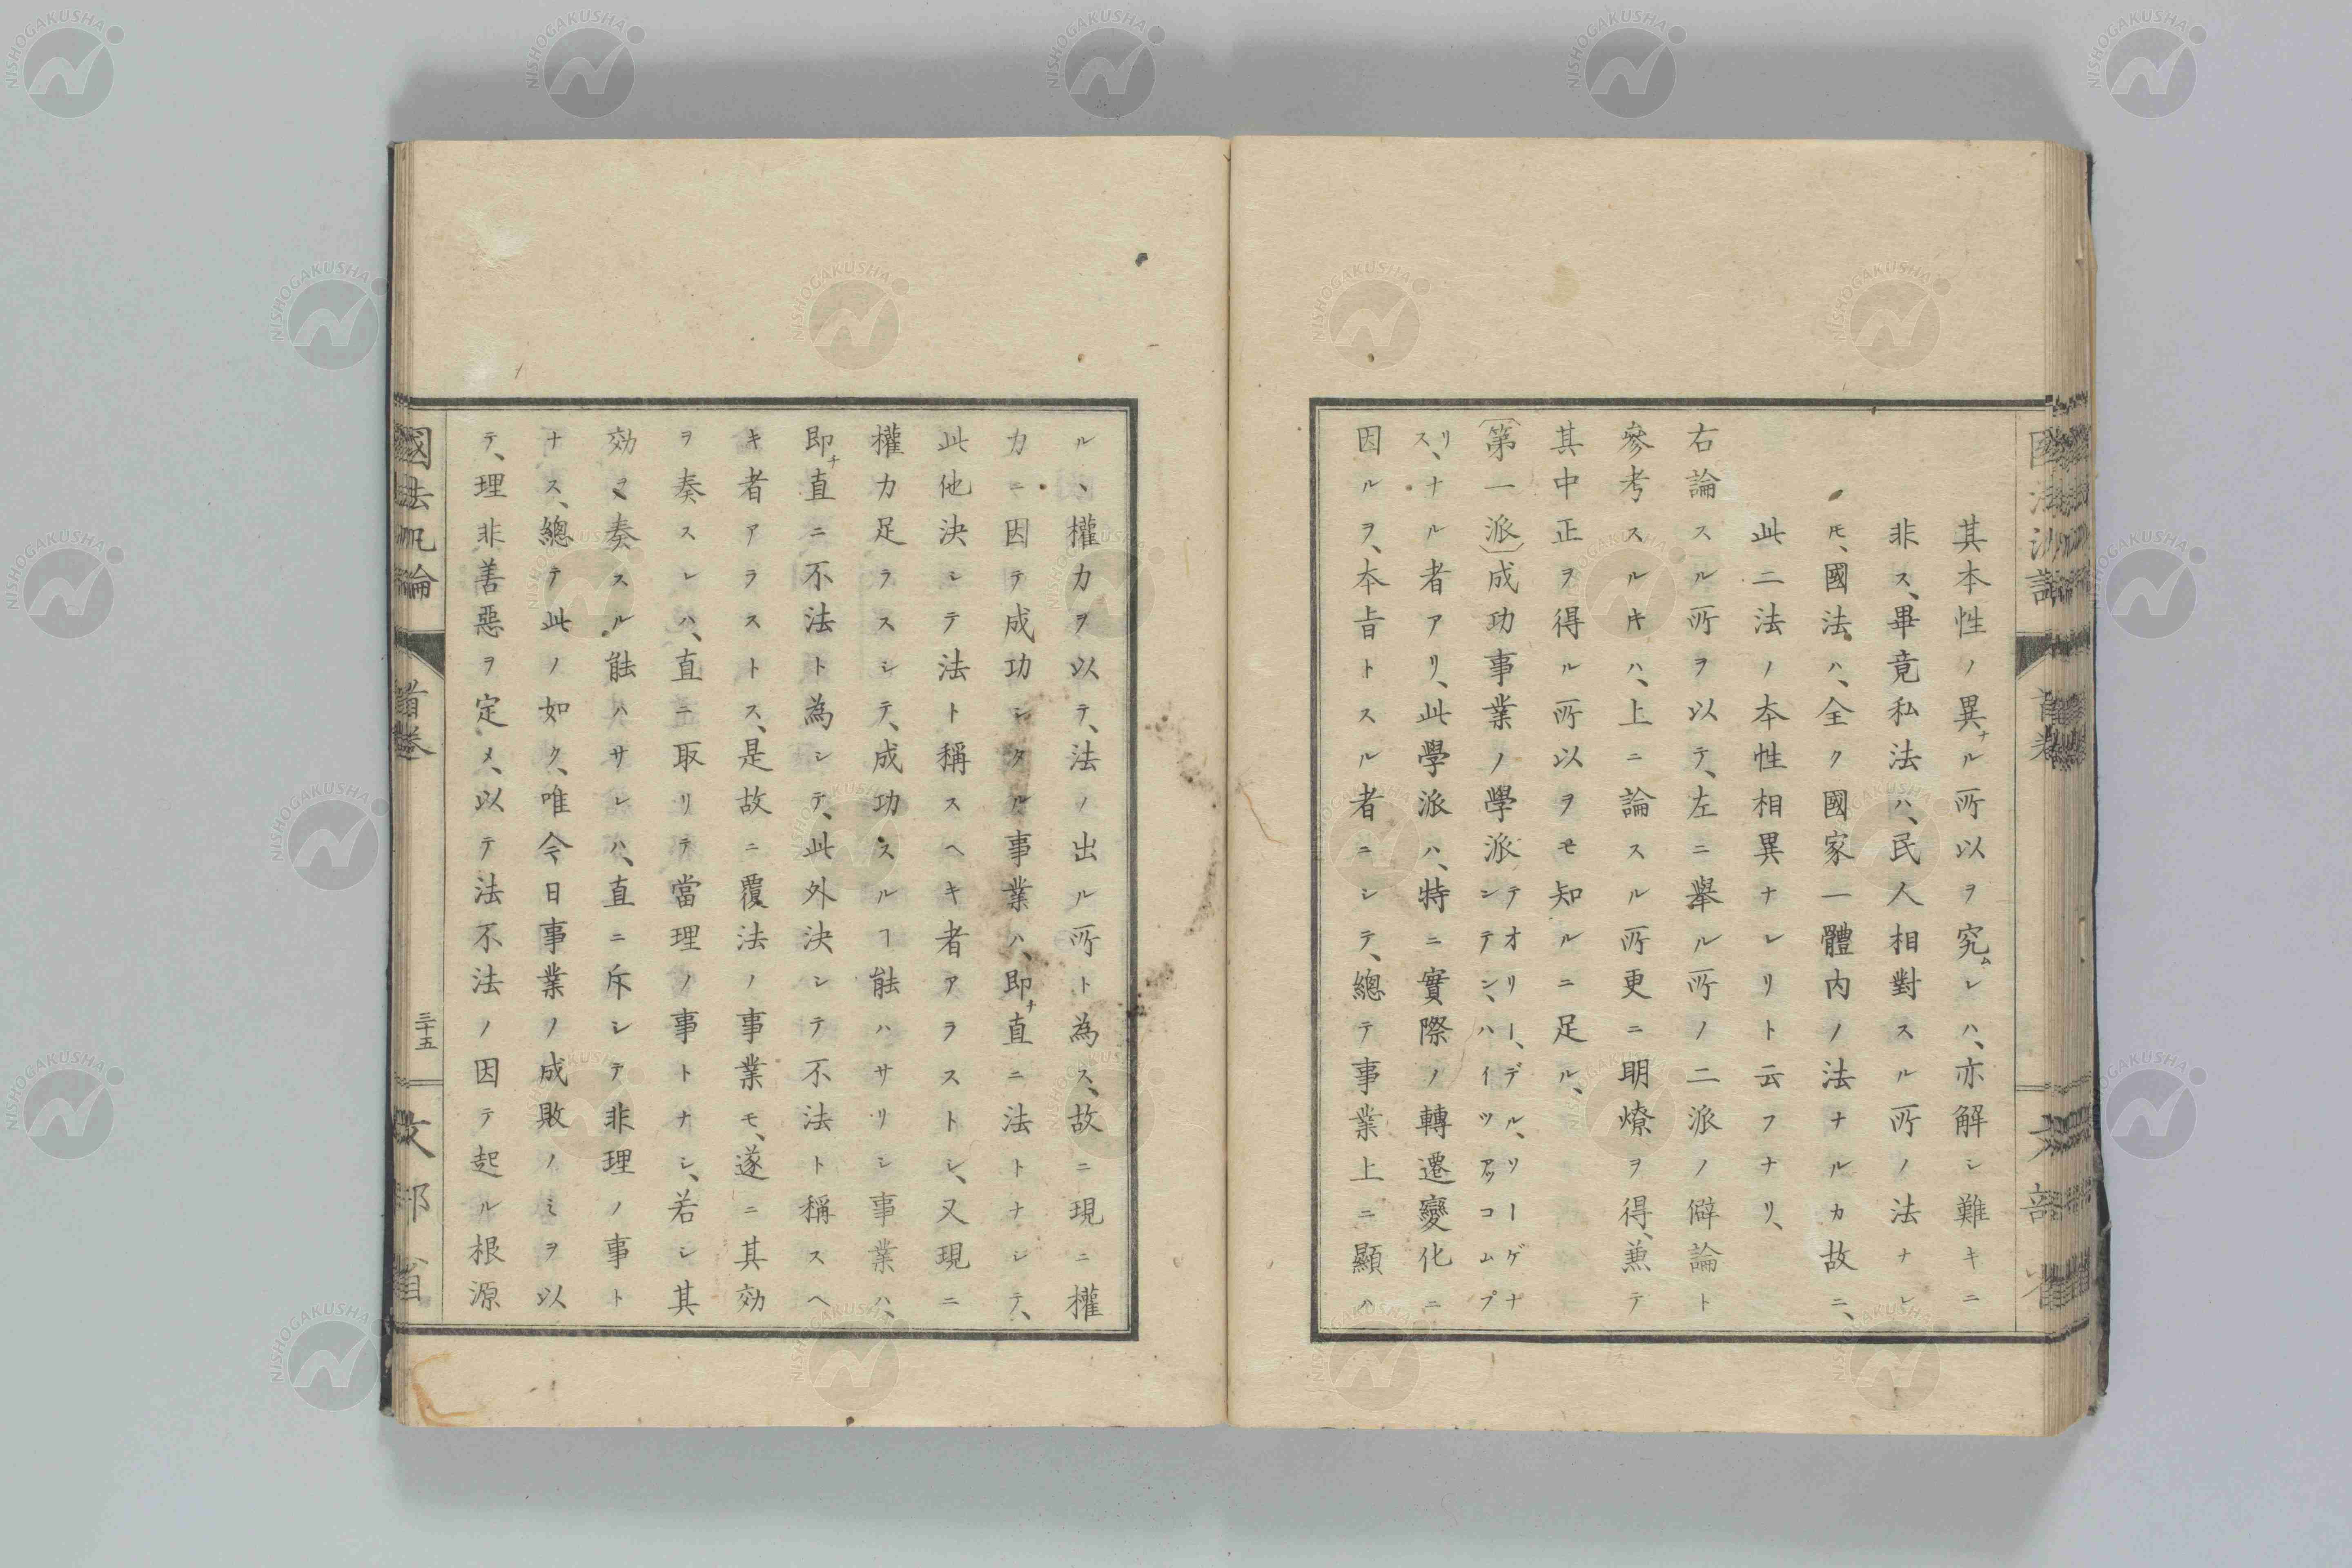 其本性ノ異ナル所以ヲ究ムレハ、亦解シ難キニ
非ス、畢竟私法ハ、民人相對スル所ノ法ナレ
𪜈、國法ハ、全ク國家一體内ノ法ナルカ故ニ、
此二法ノ本性相異ナレリト云フナリ、
右論スル所ヲ以テ、左ニ擧ル所ノ二派ノ僻論ト
參考スル𪜈ハ、上ニ論スル所更ニ明燎ヲ得、兼テ
其中正ヲ得ル所以ヲモ知ルニ足ル、
〔第一派〕成功事業ノ學派テオリー、デル、ソーゲナ
ンテン、ハイツアッコムプ
リ
ス、ナル者アリ、此學派ハ、特ニ實際ノ轉遷變化ニ
因ルヲ、本旨トスル者ニシテ、總テ事業上ニ顯ハ
ル、權力ヲ以テ、法ノ出ル所ト為ス、故ニ現ニ權
力ニ因テ成功シタル事業ハ、即ナ直ニ法トナシテ、
此他決シテ法ト稱スヘキ者アラストシ、又現ニ
權力足ラスシテ、成功スルヿ能ハサリシ事業ハ、
即ナ直ニ不法ト為シテ、此外決シテ不法ト稱スヘ
キ者アラストス、是故ニ覆法ノ事業モ、遂ニ其効
ヲ奏スレハ、直ニ取リテ當理ノ事トナシ、若シ其
効ヲ奏スル能ハサレハ、直ニ斥シテ非理ノ事ト
ナス、總テ此ノ如ク、唯今日事業ノ成敗ノミヲ以
テ、理非善惡ヲ定メ、以テ法不法ノ因テ起ル根源
國法汎論
首卷
三十五
文部省
NISHOGAKUSHA